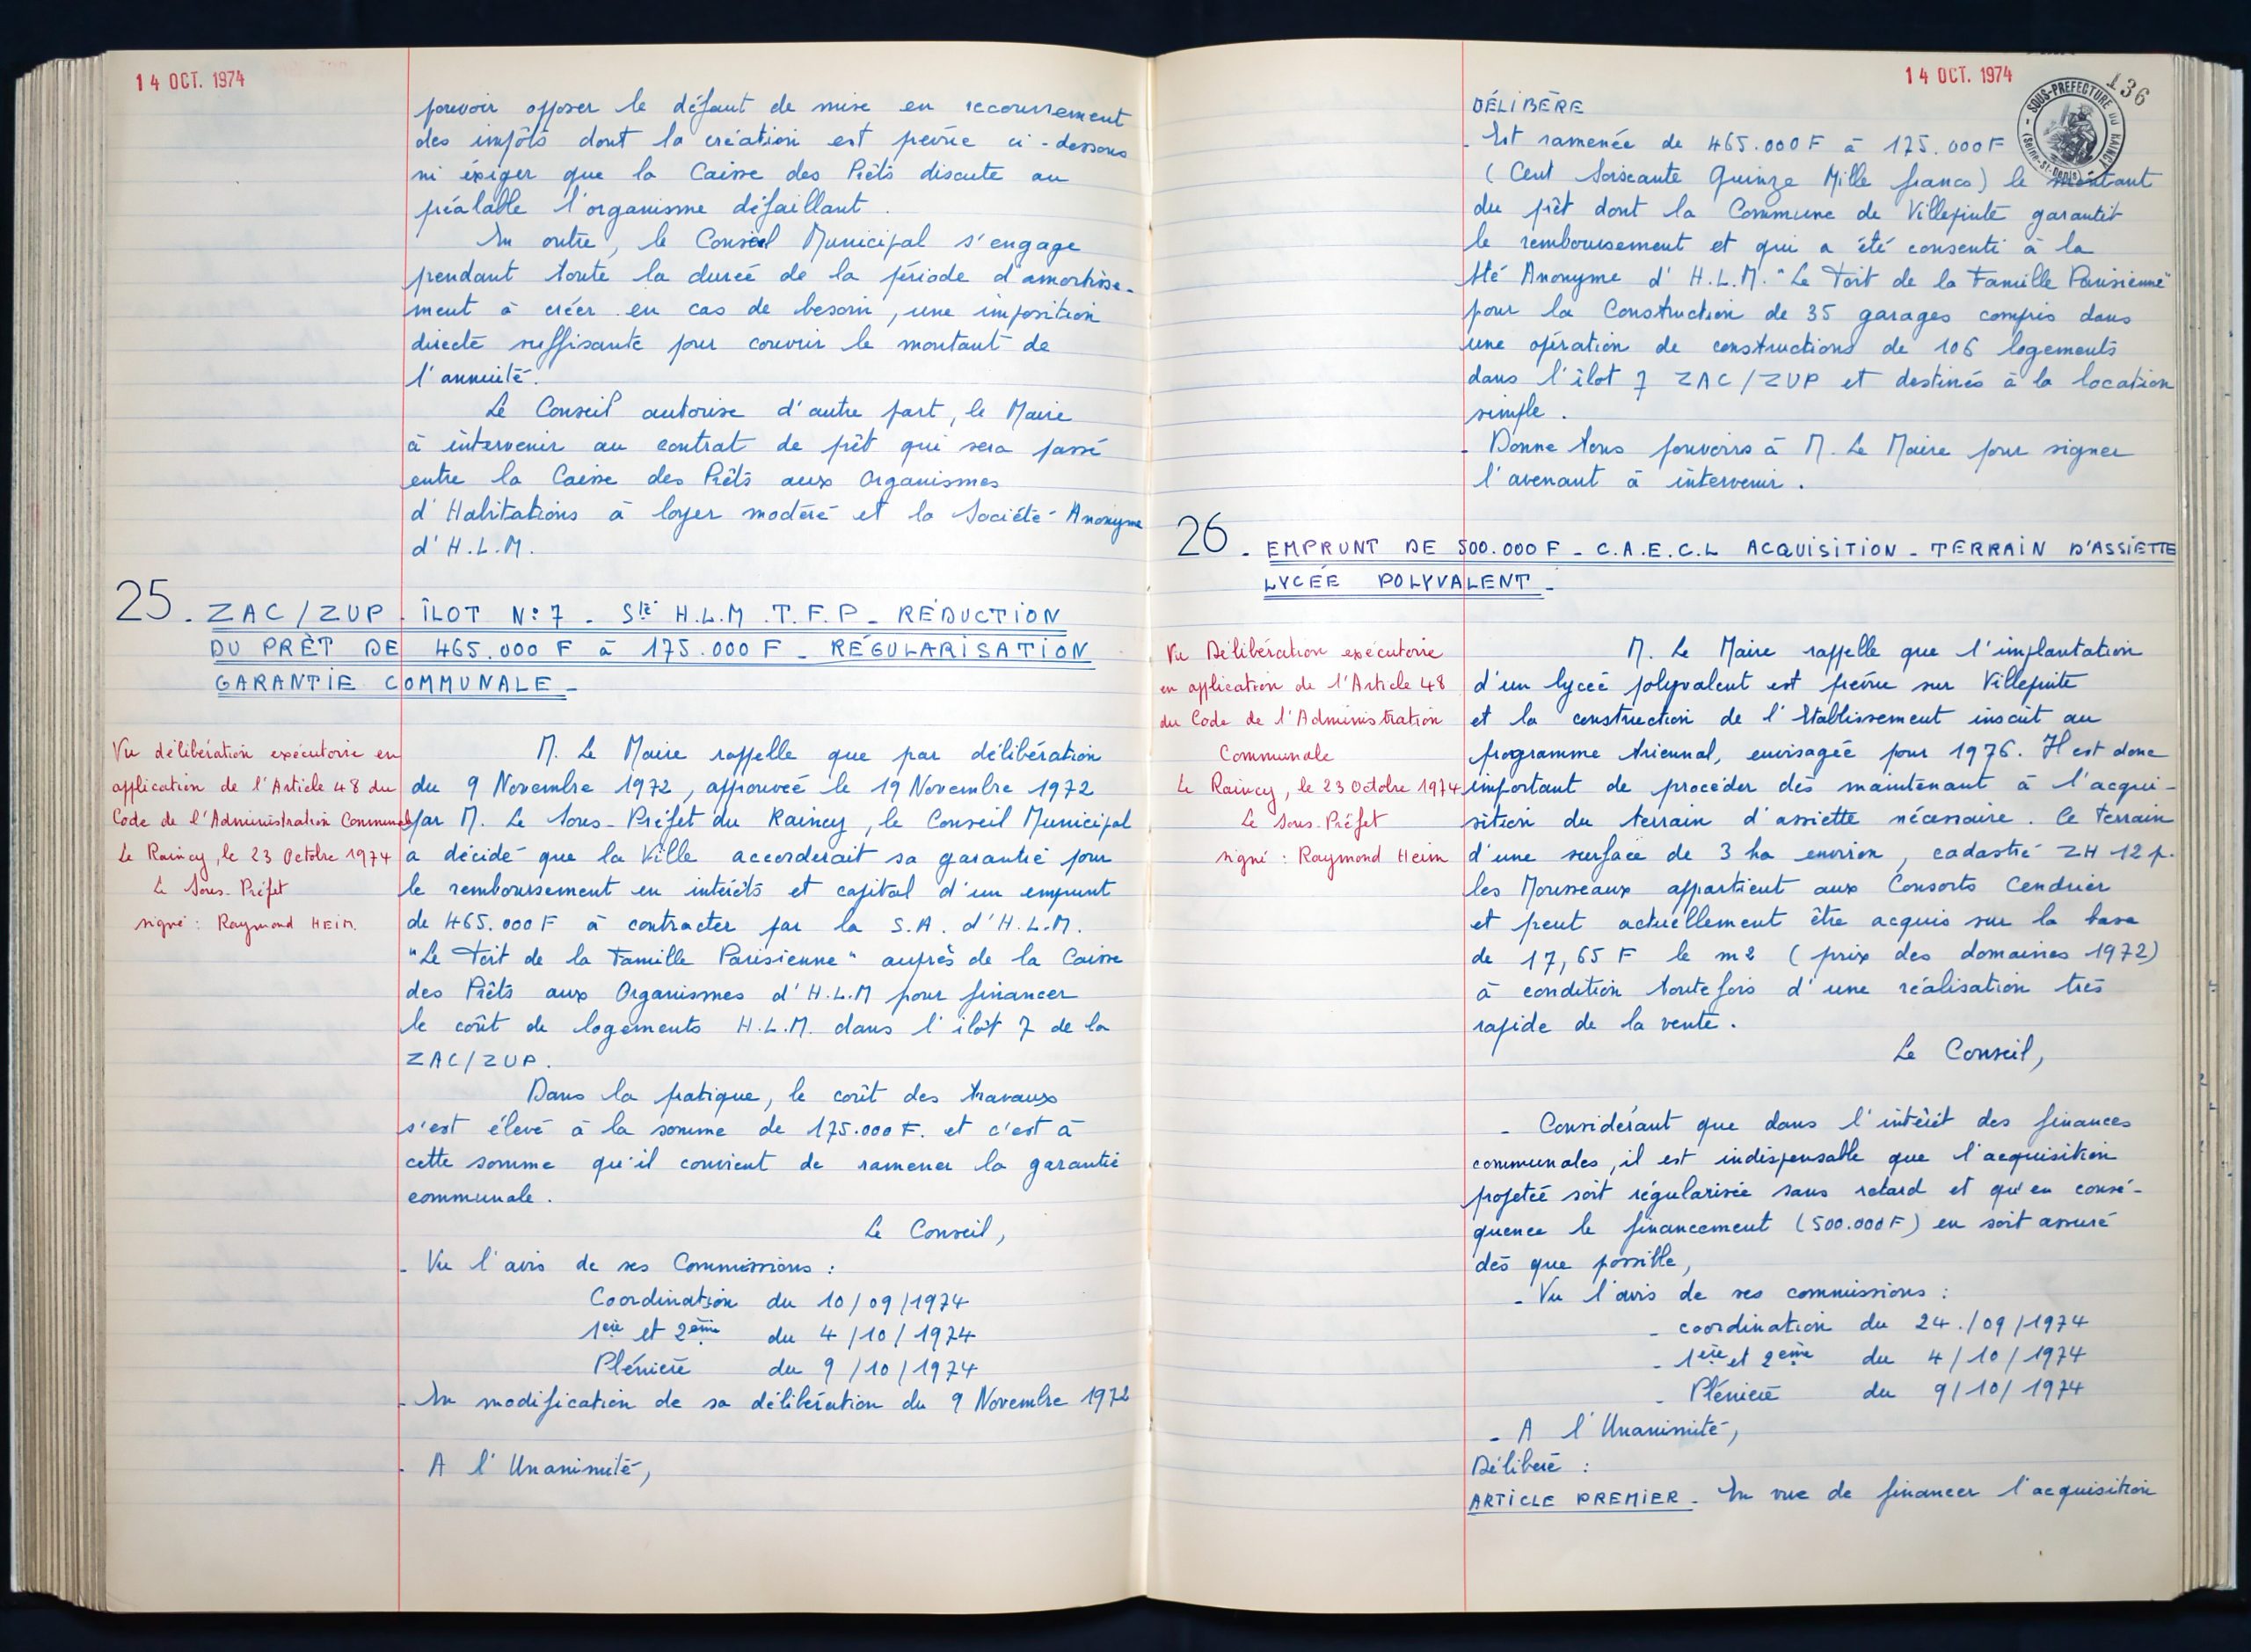 14 OCT. 1974
pouvoir opposer le défaut de mise en recouvrement
des impôts dont la création est prévue ci-dessous
ni éxiger que la Caisse des Prêts discute au
préalable l'organisme défaillant.
En outre, le Conseil Municipal s'engage
pendant toute la durée de la période d'amortisse-
ment à créer en cas de besoin, une imposition
directe suffisante pour couvrir le montant de
l'annuité.
Le Conseil autorise d'autre part, le Maire
à intervenir au contrat de prêt qui sera passé
entre la Caisse des Prêts aux Organismes
d'Habitations à loyer modéré et la Société Anonyme
d'H.L.M.
25. ZAC/ZUP. ÎLOT N°: 7 - Sté H.L.M. T.F.P - RÉDUCTION
DU PRÊT DE 465.000 F à 175.000 F - RÉGULARISATION
GARANTIE COMMUNALE -
Vu délibération exécutoire en
application de l'Article 48 du
Code de l'Administration Communale
Le Raincy, le 23 Octobre 1974
Le Sous-Préfet
signé : Raymond HEIM.
M. Le Maire rappelle que par délibération
du 9 Novembre 1972, approuvée le 19 Novembre 1972
par M. Le Sous-Préfet du Raincy, le Conseil Municipal
a décidé que la Ville accorderait sa garantie pour
le remboursement en intérêts et capital d'un emprunt
de 465.000 F à contracter par la S.A. d'H.L.M.
"Le Toit de la Famille Parisienne" auprès de la Caisse
des Prêts aux Organismes d'H.L.M pour financer
le coût de logements H.L.M. dans l'ilôt 7 de la
ZAC/ZUP.
Dans la pratique, le coût des travaux
s'est élevé à la somme de 175.000 F. et c'est à
cette somme qu'il convient de ramener la garantie
communale.
Le Conseil,
- Vu l'avis de ses Commissions :
Coordination du 10/09/1974
1ère et 2ème du 4/10/1974
Plénière du 9/10/1974
- En modification de sa délibération du 9 Novembre 1972
- A l'Unanimité,
14 OCT. 1974
136
SOUS-PREFECTURE DU RAINCY
(Seine-St-Denis)
DÉLIBÈRE
- Est ramenée de 465.000 F à 175.000 F
(Cent Soixante Quinze Mille francs) le montant
du prêt dont la Commune de Villepinte garantit
le remboursement et qui a été consenti à la
Sté Anonyme d'H.L.M. "Le Toit de la Famille Parisienne"
pour la Construction de 35 garages compris dans
une opération de constructions de 106 logements
dans l'îlot 7 ZAC/ZUP et destinés à la location
simple.
- Donne tous pouvoirs à M. Le Maire pour signer
l'avenant à intervenir.
26. EMPRUNT DE 500.000 F - C.A.E.C.L ACQUISITION - TERRAIN D'ASSIETTE
LYCÉE POLYVALENT -
Vu Délibération exécutoire
en application de l'Article 48
du Code de l'Administration
Communale
Le Raincy, le 23 Octobre 1974
Le Sous-Préfet
signé : Raymond Heim
M. Le Maire rappelle que l'implantation
d'un lycée polyvalent est prévu sur Villepinte
et la construction de l'Etablissement inscrit au
programme triennal, envisagée pour 1976. Il est donc
important de procéder dès maintenant à l'acqui-
sition du terrain d'assiette nécessaire. Ce terrain
d'une surface de 3 ha environ, cadastré ZH 12 p.
les Mousseaux appartient aux Consorts Cendrier
et peut actuellement être acquis sur la base
de 17,65 F le m2 (prix des domaines 1972)
à condition toutefois d'une réalisation très
rapide de la vente.
Le Conseil,
- Considérant que dans l'intérêt des finances
communales, il est indispensable que l'acquisition
projetée soit régularisée sans retard et qu'en consé-
quence le financement (500.000 F) en soit assuré
dès que possible,
- Vu l'avis de ses commissions :
- coordination du 24./09/1974
- 1ère et 2ème du 4/10/1974
- Plénière du 9/10/1974
- A l'Unanimité,
Délibère :
ARTICLE PREMIER - En vue de financer l'acquisition